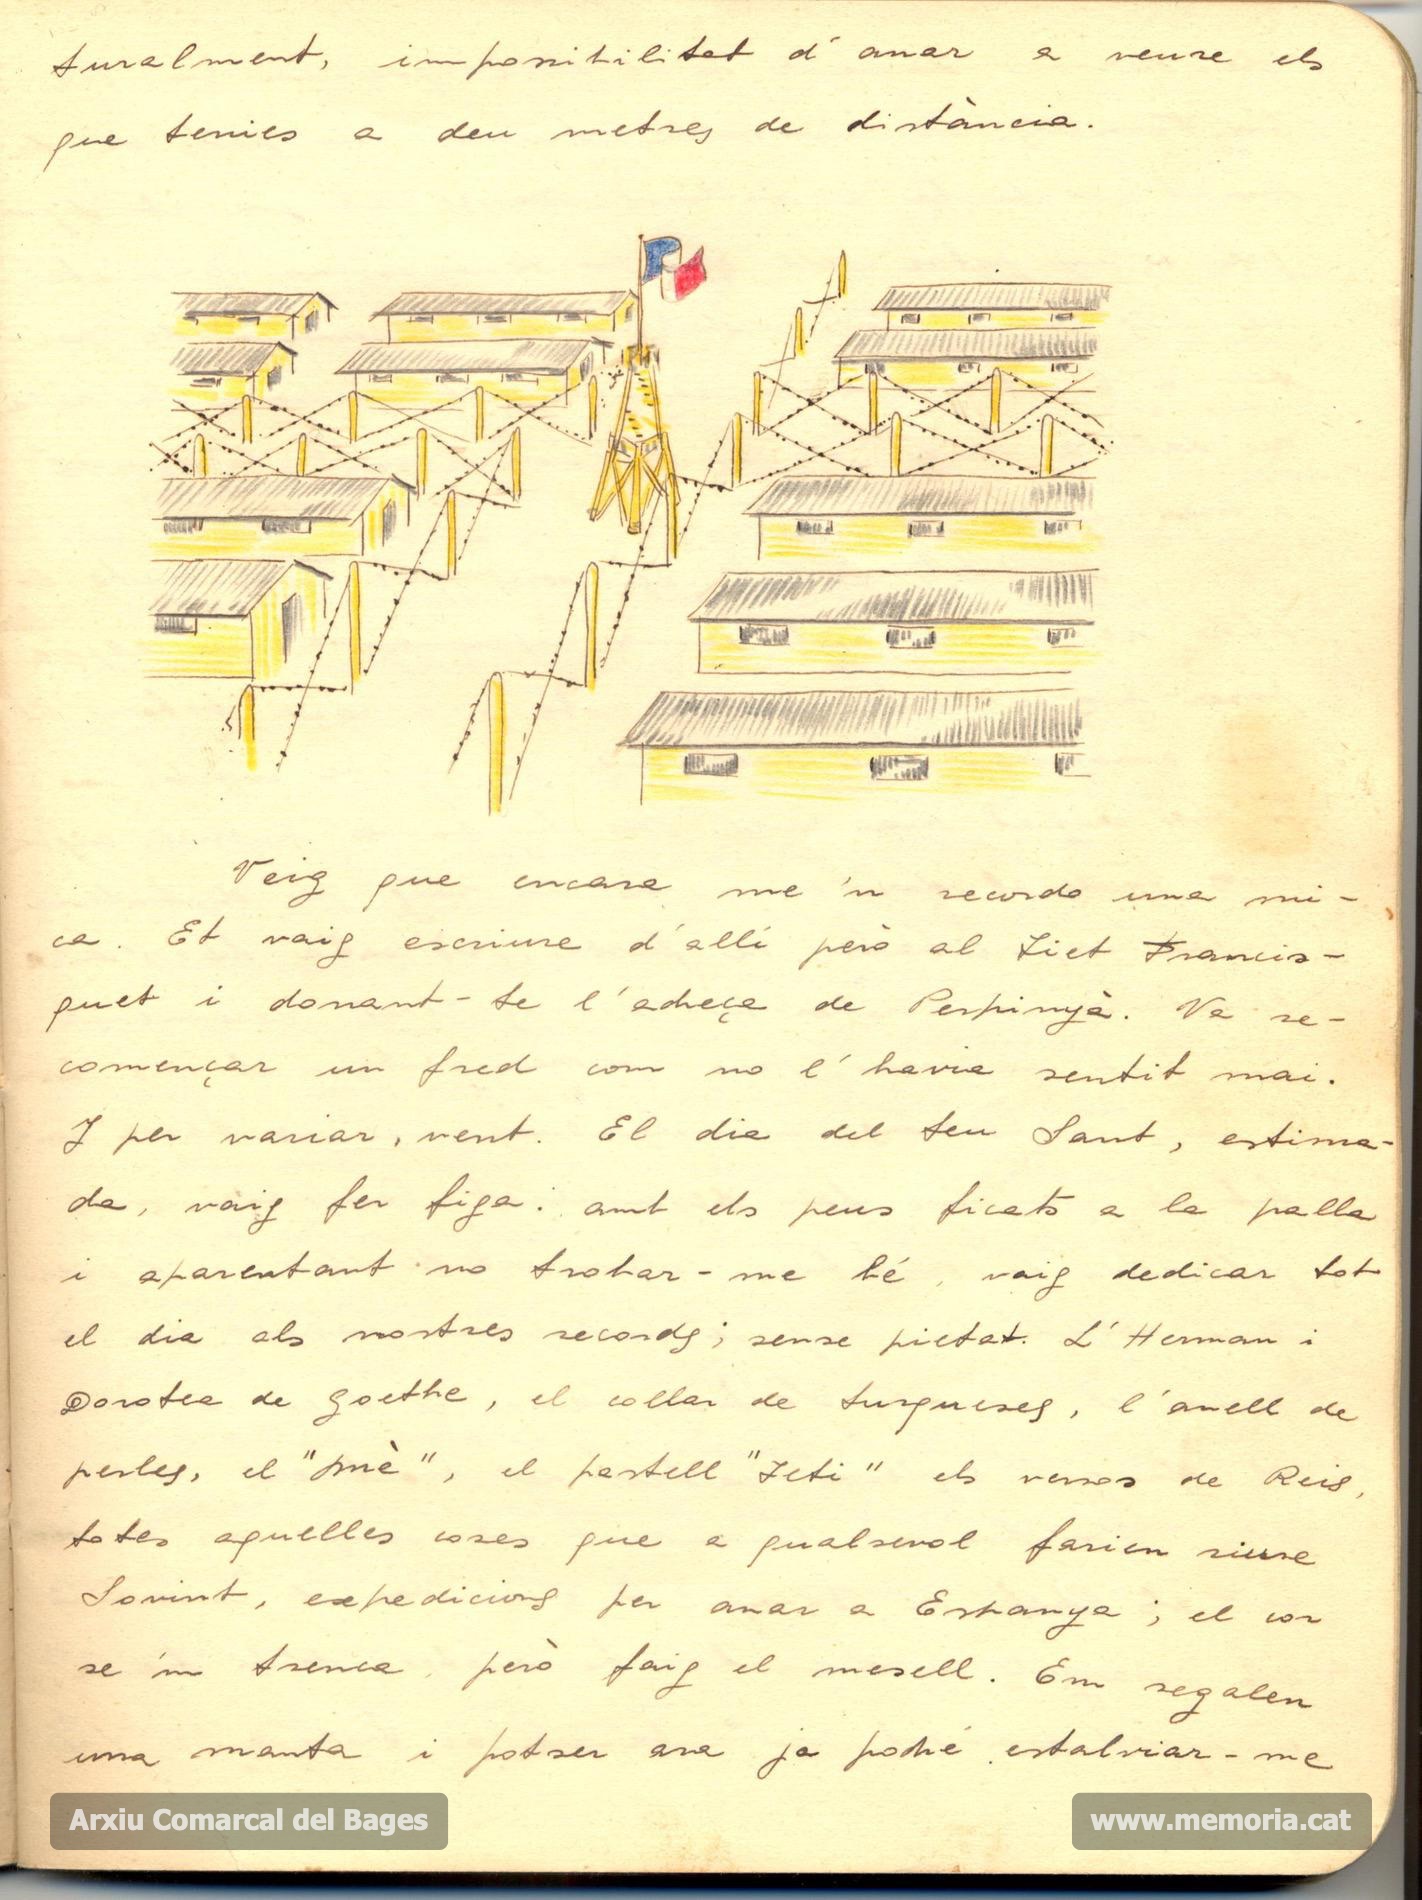 turalment, impossibilitat d'anar a veure els
que tenies a deu metres de distància.
Veig que encara me 'n recordo una mi-
ca. Et vaig escriure d'allí però al Tiet Francis-
quet i donant-te l'adreça de Perpinyà. Va re-
començar un fred com no l'havia sentit mai.
I per variar, vent. El dia del teu Sant, estima-
da, vaig fer figa: amb els peus ficats a la palla
i aparentant no trobar-me bé, vaig dedicar tot
el dia als nostres records; sense pietat. L'Herman i
Dorotea de Goethe, el collar de turqueses, l'anell de
perles, el " ", el pastell "Teti" els versos de Reis,
totes aquelles coses que a qualsevol farien riure
Sovint, expedicions per anar a Espanya; el cor
se 'm trenca però faig el mesell. Em regalen
una manta i potser ara ja podré estalviar-me
Arxiu Comarcal del Bages
www.memoria.cat